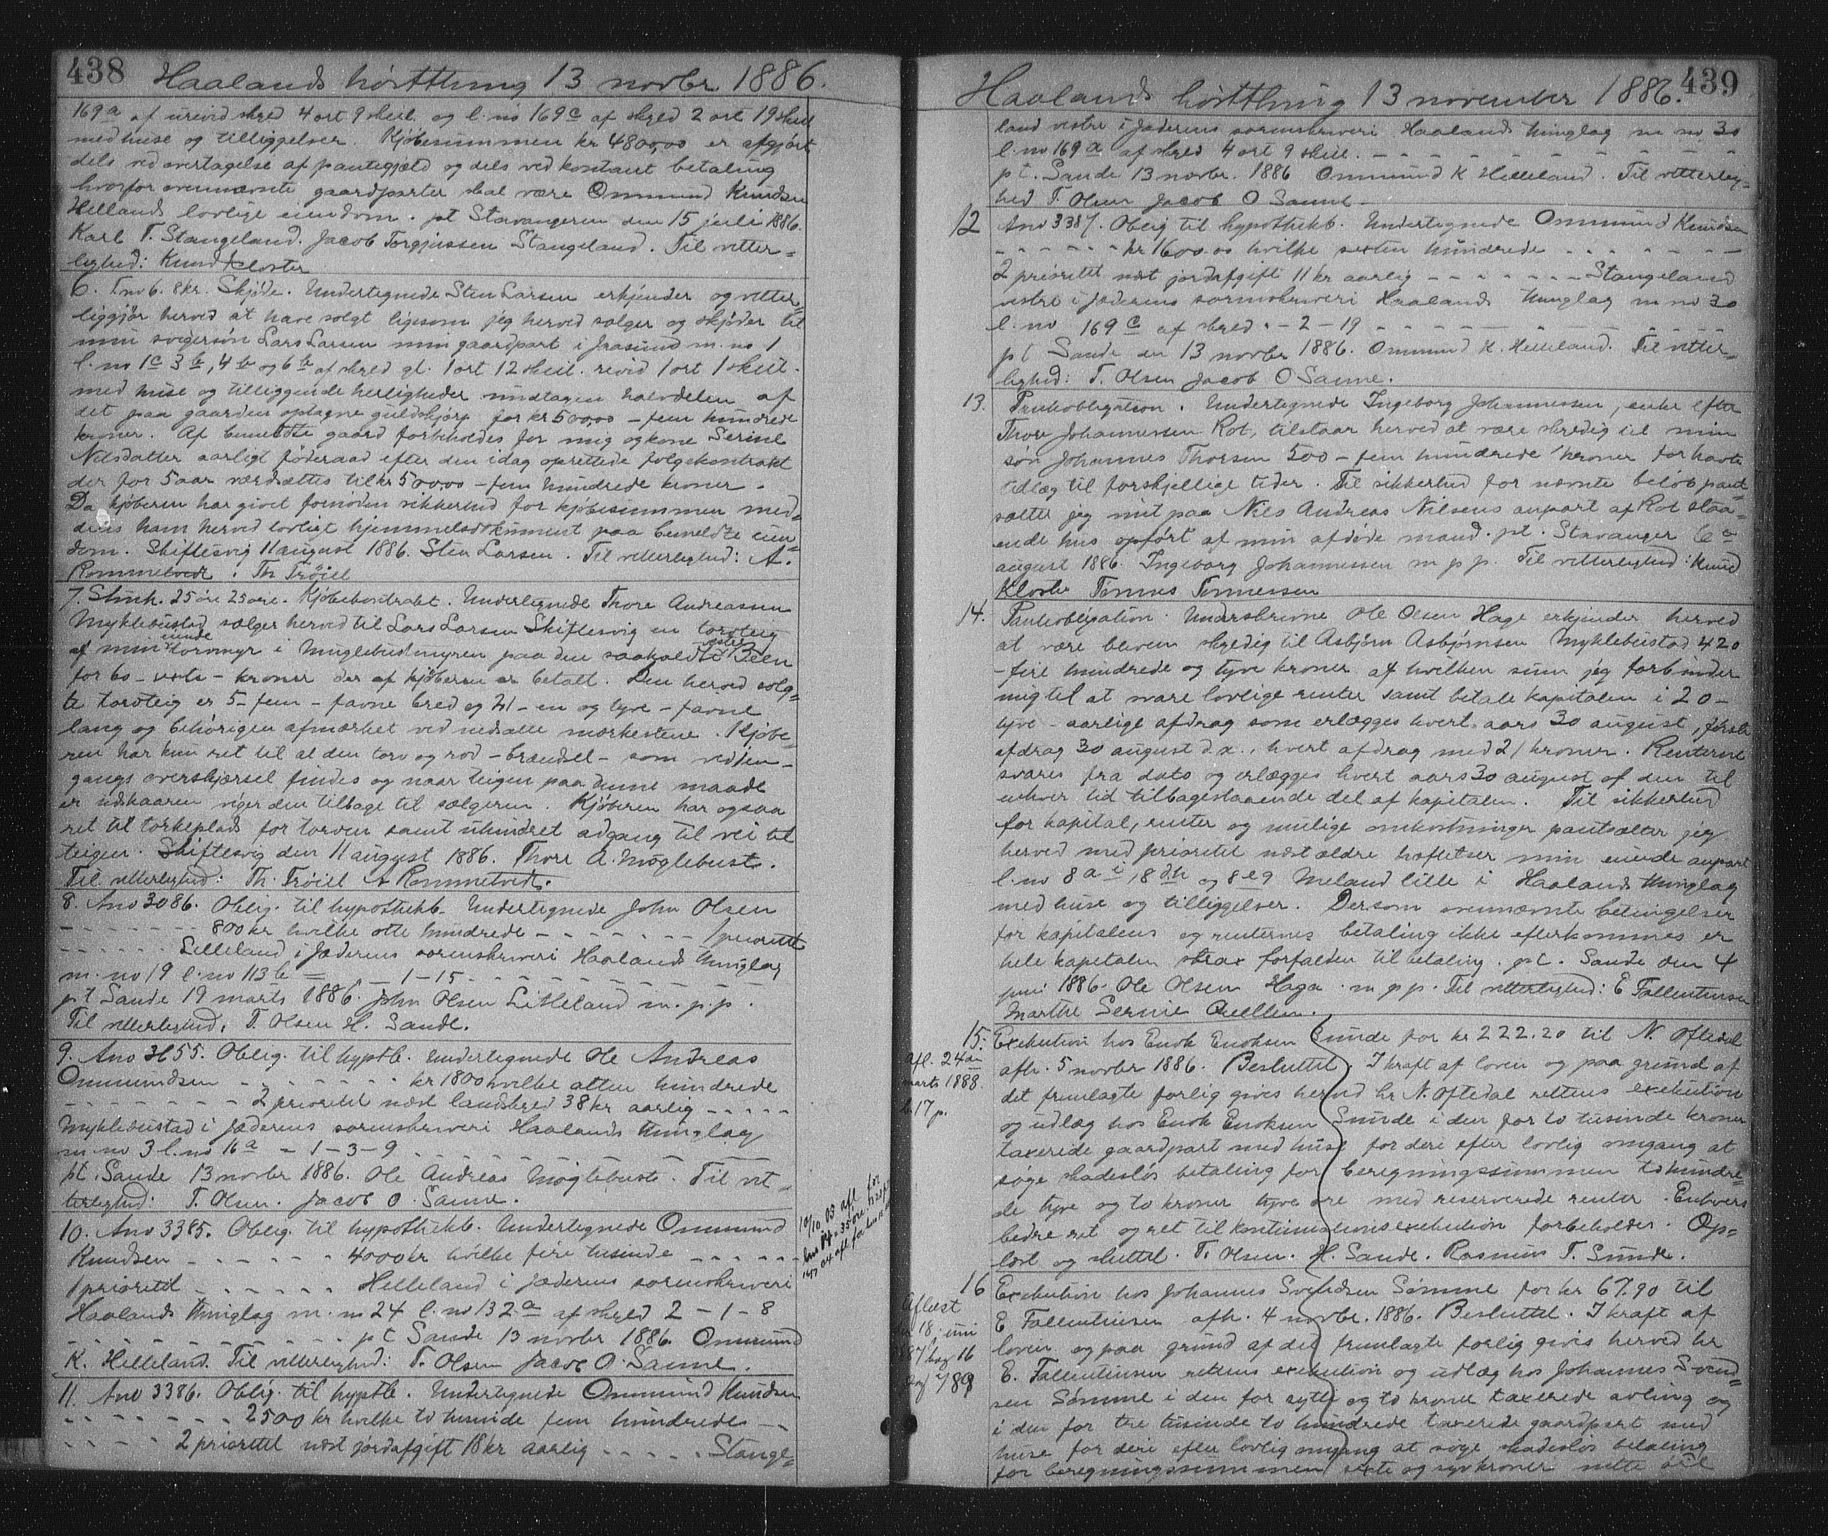 438 Haalands hösttthing 13 novbr 1886.
169a af urevid skyld 4 ort 9 skil. og l. no 169c af skyld 2 ort 19 skil
med huse og tilliggelser. Kjöbesummen kr 4800,00 er afgjört
dels ved overtagelse af pantegjæld og dels ved kontant betaling
hvorfor ovennævnte gaardparter skal være Ommund Knudsen
Hellands lovlige eiendom. pt Stavangeren den 15 juli 1886.
Karl T. Stangeland. Jacob Torgjussen Stangeland. Til vitter-
lighed: Knud Kloster
6. T no 6. 8 kr. Skjöde. Undertegnede Sten Larsen erkjender og vitter-
liggjör herved at have solgt ligesom jeg herved sælger og skjöder til
min svigersön Lars Larsen min gaardpart i Grasund m. no 1
l. no 1c 3b, 4b og 6b af skyld gl. 1 ort 12 skill. revid 1 ort 1 skill.
med huse og tilliggende herligheder undtagen halvdelen af
det paa gaarden optagne guldskjærp for kr 500,00 - fem hundrede
kroner. Af bemeldte gaard forbeholdes for mig og kone Serine
Nilsdatter aarligt föderaad efter den idag oprettede folgekontrakt
der for 5 aar værdsættes til kr 500,00 - fem hundrede kroner.
Da kjöberen har givet fornöden sikkerhed for kjöbesummen med-
deles ham herved lovligt hjemmelsdokument paa bemeldte eien-
dom. Skiftesvig 11 august 1886. Sten Larsen. Til vitterlighed: A.
Rommetvedt. Th Tröiel
7. Stuk. 25 öre 25 öre. Kjöbekontrakt. Undertegnede Thore Andreassen
Myklebustad sælger herved til Lars Larsen Skiftesvig en torvteig
af min eiende torvmyr i Müglebustmyren paa den saakaldte
for 60 - - kroner der af kjöberen er betalt. Den herved solg-
te torvteig er 5 - fem - favne bred og 21 - en og tyve - favne
lang og behörigen afmærket ved nedsatte mærkestene. Kjöbe-
ren har kun ret til al den torv og rod - brændsel - som ved en-
gangs overskjærsel findes og naar teigen paa denne maade
er udskaaren viger den tilbage til sælgeren. Kjöberen har ogsaa
ret til torkeplads for torven samt uhindret adgang til vei til
teigen. Skiftesvig den 11 august 1886. Thore A. Möglebust.
Til vitterlighed: Th. Tröiel A Rommetvedt.
8. Ano 3086. Oblig. til hypothekb. Undertegnede John Olsen
- - - - - - 800 kr hvilke otte hundrede - - - - - - 1 prioritet
- - - - - Lilleland i Jæderens sorenskriveri Haalands thinglag
m. no 19 l. no 113b = - - 1-15 - - - - - -
pt Sande 19 marts 1886. John Olsen Litleland m. p. p.
Til vitterlighed, T. Olsen H. Sande.
9. Ano 3655. Oblig. til hyptb. Undertegnede Ole Andreas
Ommundsen - - - - - - - kr 1800 hvilke atten hundrede
- - - - - - - 2 prioritet næst landskyld 38 kr aarlig - - - - -
Myklebustad i Jæderens sorenskriveri Haalands thinglag
m. no 3 l. no 16a - 1-3-9 - - - - - - -
pt. Sande 13 novbr 1886. Ole Andreas Möglebust. Til vit-
terlighed: T. Olsen. Jacob O. Sanne.
10. Ano 3385. Oblig. til hypothekb. Undertegnede Ommund
Knudsen - - - - 4000 kr hvilke fire tusinde - - - - -
1 prioritet - - - - - - Helleland i Jæderens sorenskriveri
Haalands thinglag m. no 24 l. no 132a af skyld 2-1-8
- - - - - - - - - pt Sande 13 novbr 1886. Ommund
K. Helleland. Til vitterlighed: T. Olsen Jacob O. Sanne.
11. Ano 3386. Oblig. til hyptb. Undertegnede Ommund Knudsen
- - - - - - - 2500 kr hvilke to tusinde fem hundrede - -
- - - - - 2 prioritet næst jordafgift 18 kr aarlig - - - - Stange-
10/10 03 afl. for
439 Haalands hösttthing 13 november 1886.
land vestre i Jæderens sorenskriveri Haalands thinglag m no 30
l. no 169a af skyld 4 ort 9 skill. - - - - - - - -
pt. Sande 13 novbr. 1886 Ommund K Helleland. Til vitterlig-
hed T. Olsen Jacob O Sanne -
12 Ano 3387. Oblig til hypothekb. Undertegnede Ommund Knudsen
- - - - - - kr 1600.00 hvilke sexten hundrede - - - - -
2 prioritet næst jordafgift 11 kr aarlig - - - - - Stangeland
vestre i Jæderens sorenskriveri Haalands thinglag m no 30
l. no 169c af skyld. - 2 - 19 - - - - - - - - -
pt Sande den 13 novbr 1886. Ommund K. Helleland. Til vitter-
lighed: T. Olsen Jacob O Sanne.
13. Panteobligation. Undertegnede Ingeborg Johannessen, enke efter
Thore Johannessen Rot, tilstaar herved at være skyldig til min
sön Johannes Thorsen 500 - fem hundrede kroner for havte
udlæg til forskjellige tider. Til sikkerhed for nævnte belöb pant-
sætter jeg mit paa Nils Andreas Nilsens anpart af Rot staa-
ende hus opfört af min afdöde mand. pt. Stavanger 6te
august 1886. Ingeborg Johannessen m. p. p. Til vitterlighed: Knud
Kloster Tönnes Tönnessen
14. Panteobligation. Underskrevne Ole Olsen Hage erkjender herved
at være bleven skyldig til Asbjörn Asbjörnsen Myklebustad 420
- fire hundrede og tyve kroner af hvilken sum jeg forbinder
mig til at svare lovlige renter samt betale kapitalen i 20 -
tyve - aarlige afdrag som erlægges hvert aars 30 august, förste
afdrag 30 august d. a., hvert afdrag med 21 kroner. Renterne
svares fra dato og erlægges hvert aars 30 august af den til
enhver tid tilbagestaaende del af kapitalen. Til sikkerhed
for kapital, renter og mulige omkostninger pantsætter jeg
herved med prioritet næst ældre hæftelser min eiende anpart
l. no 8a i, 8dh og 8e9 Meland lille i Haalands thinglag
med huse og tilliggelser. Dersom ovennævnte betingelser
for kapitalens og renternes betaling ikke efterkommes er
hele kapitalen strax forfalden til betaling. pt. Sande den 4
juni 1886. Ole Olsen Haga. m. p. p. Til vitterlighed: E Fallentinsen
Marthe Serine
15. Exekution hos Enok Enoksen Sunde for kr 222.20 til N. Oftedal
afl. 24de marts 1888.
afh. 5 novbr 1886. Besluttet. I kraft af loven og paa grund af
det fremlagte forlig gives herved hr N. Oftedal rettens exekution
og udlæg hos Enok Enoksen Sunde i den for to tusinde kroner
taxerede gaardpart med huse for deri efter lovlig omgang at
söge skadeslös betaling for beregningssummen to hundre-
de tyve og to kroner tyve öre med reserverede renter. Enhvers
bedre ret og ret til kontinuationsexekution forbeholdes. Op-
læst og sluttet. T. Olsen. H. Sande. Rasmus T. Sunde.
16 Exekution hos Johannes Svendsen Sömme for kr 67.90 til
Aflæst 18 juni
E Fallentinsen afh. 4 novbr. 1886. Besluttet. I kraft af
loven og paa grund af det fremlagte forlig gives herved hr
E. Fallentinsen rettens exekution og udlæg hos Johannes Svend-
sen Sömme i den for sytti og to kroner taxerede avling og
i den for tre tusinde to hundrede taxerede gaardpart med
huse for deri efter lovlig omgang at söge skadeslös betaling
for beregningssummen sexti og syv kroner nitti öre